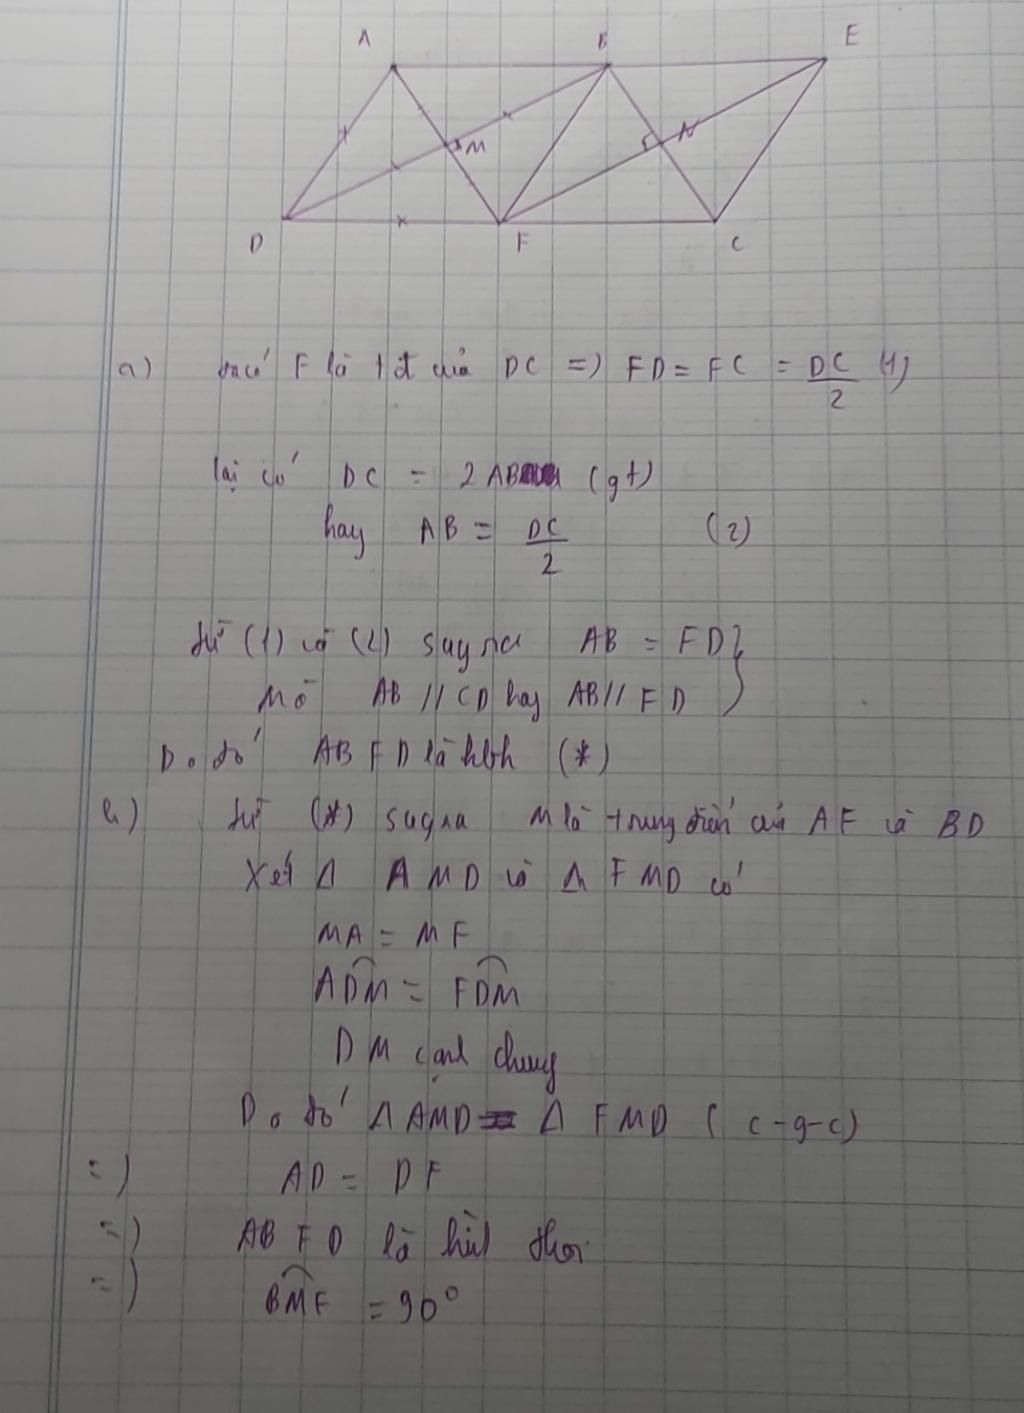 A B E
M N
D F C
a) Ta có F là tđ của DC => FD = FC = DC/2 (1)
lại có DC = 2AB (gt)
hay AB = DC/2 (2)
từ (1) và (2) suy ra AB = FD }
Mà AB // CD hay AB // FD
Do đó ABFD là hbh (*)
b) từ (*) suy ra M là trung điểm của AF và BD
Xét Δ AMD và Δ FMD có
MA = MF
ADM = FDM
DM cạnh chung
Do đó Δ AMD = Δ FMD ( c-g-c)
=) AD = DF
=) ABFD là hình thoi
=) BMF = 90°